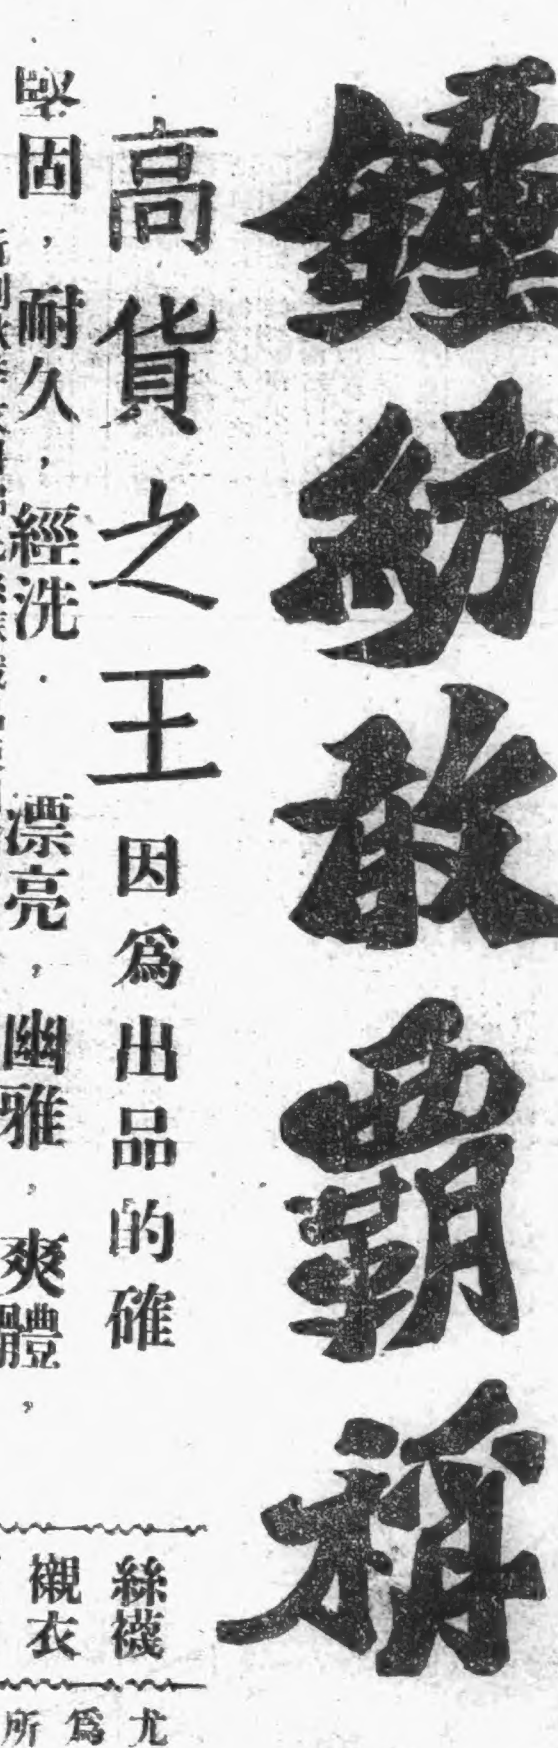 錘紡敢覇稱
高貨之王因爲出品的確
堅固，耐久，經洗．漂亮，幽雅，爽體，
絲襪
襯衣
尤爲所